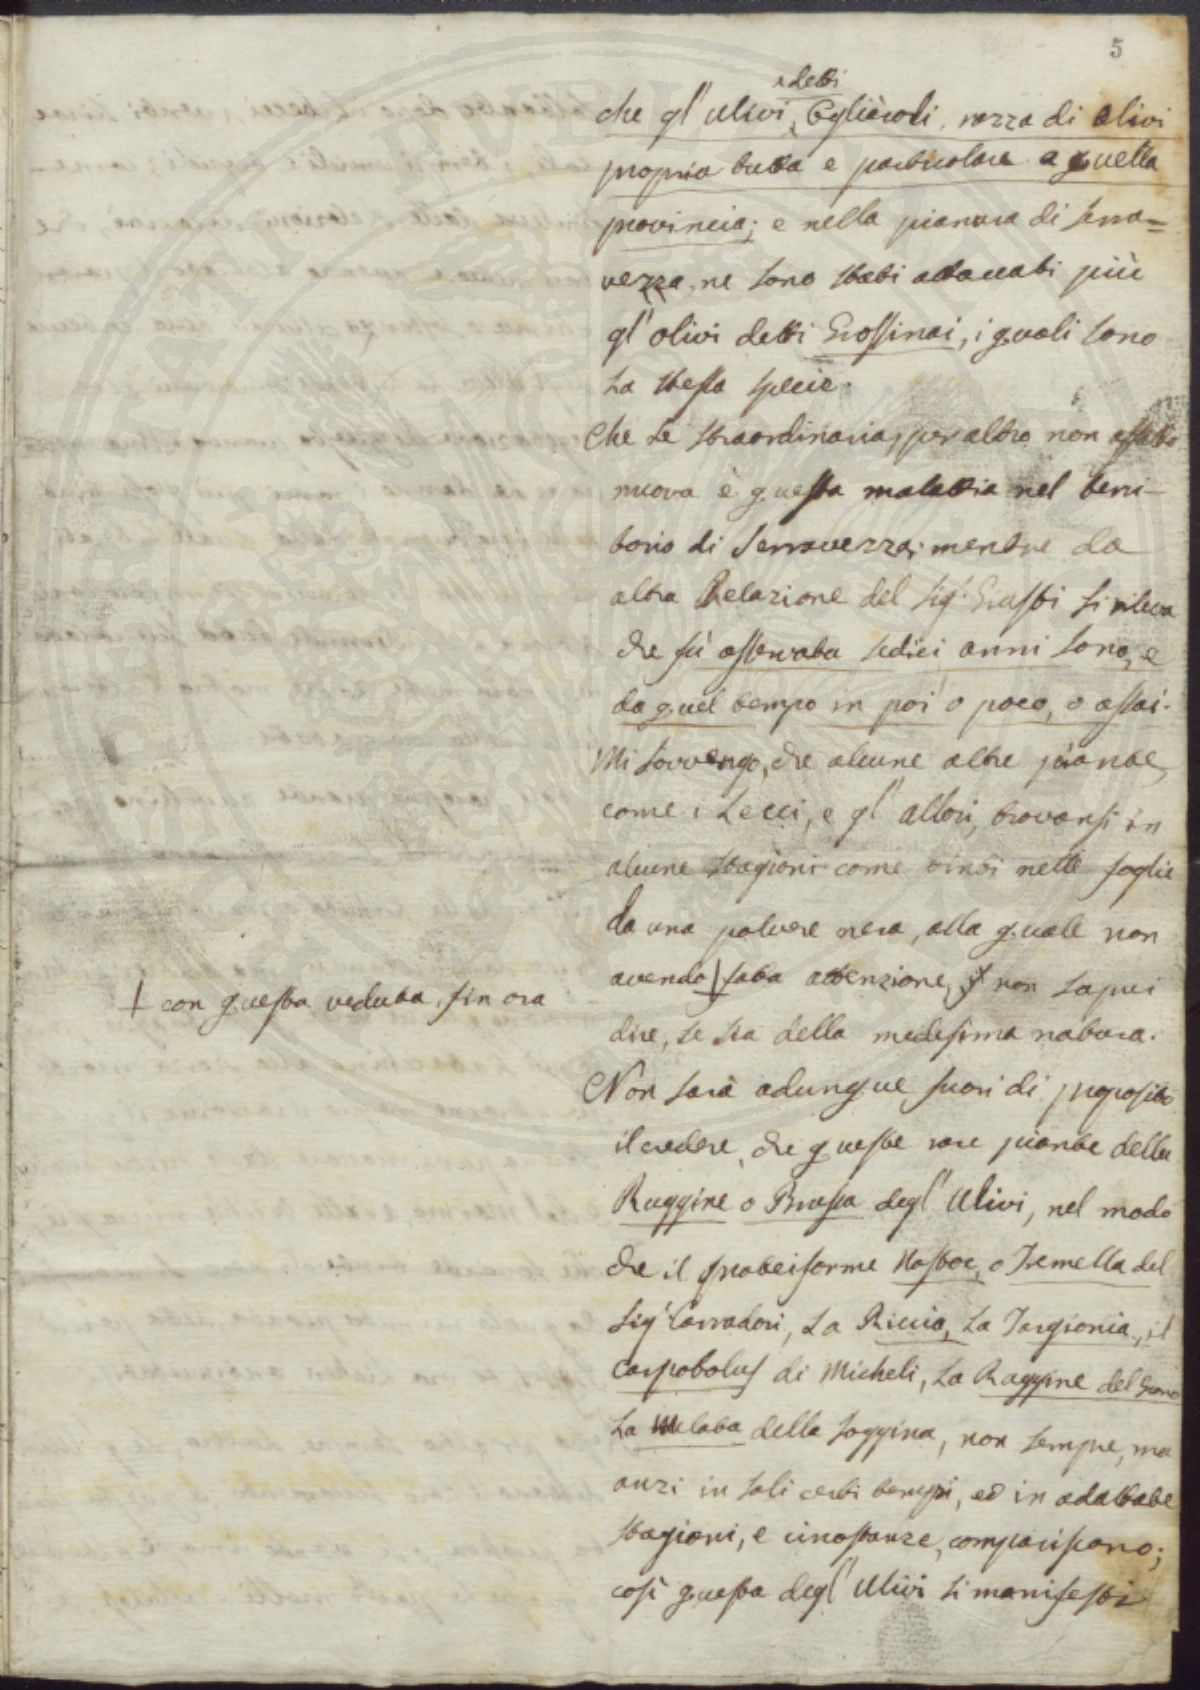 5
detti
che gl' Ulivi Gogliècoli, razza di olivi
propria tutta e particolare a quella
provincia; e nella pianura di Serra=
vezza, ne sono stati attaccati più
gl' olivi detti Grossinai, i quali sono
La stessa specie.
Che se straordinaria, per altro non affatto
nuova è questa malattia nel terri-
torio di Serravezza; mentre da
altra Relazione del Sig.r si rileva
che fù osservata sedici anni sono, e
da quel tempo in poi o poco, o assai.
Mi sovvengo, che alcune altre piante,
come i Lecci, e gl' allori, trovansi in
alcune stagioni come tinti nelle foglie
da una polvere nera, alla quale non
avendo fatta attenzione, non saprei
ƚ con questa veduta fin ora
dire, se sia della medesima natura.
Non sarà adunque fuori di proposito
il credere, che queste rare piante della
Ruggine o Brusca degl' Ulivi, nel modo
che il proteiforme Nostoc, o Tremella del
Sig.r Carradori, La Riccia, La Targionia, il
Carpobolus di Micheli, La Ruggine del Grano
La Melata della Saggina, non sempre, ma
anzi in soli certi tempi, ed in adattate
stagioni, e circostanze, compariscano;
così questa degl' Ulivi si manifesti